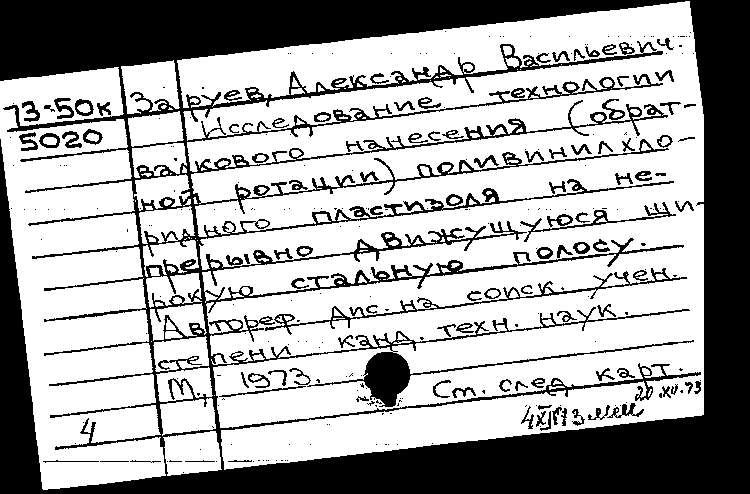 73-50к Заруев, Александр Васильевич.
5020 Исследование технологии
валкового нанесения (обрат-
ной ротации) поливинилхло-
ридного пластизоля на не-
прерывно движущуюся ши-
рокую стальную полосу.
Автореф. дис. на соиск. учен.
степени канд. техн. наук.
М., 1973.
Ст. след. карт.
4
20.XII.73